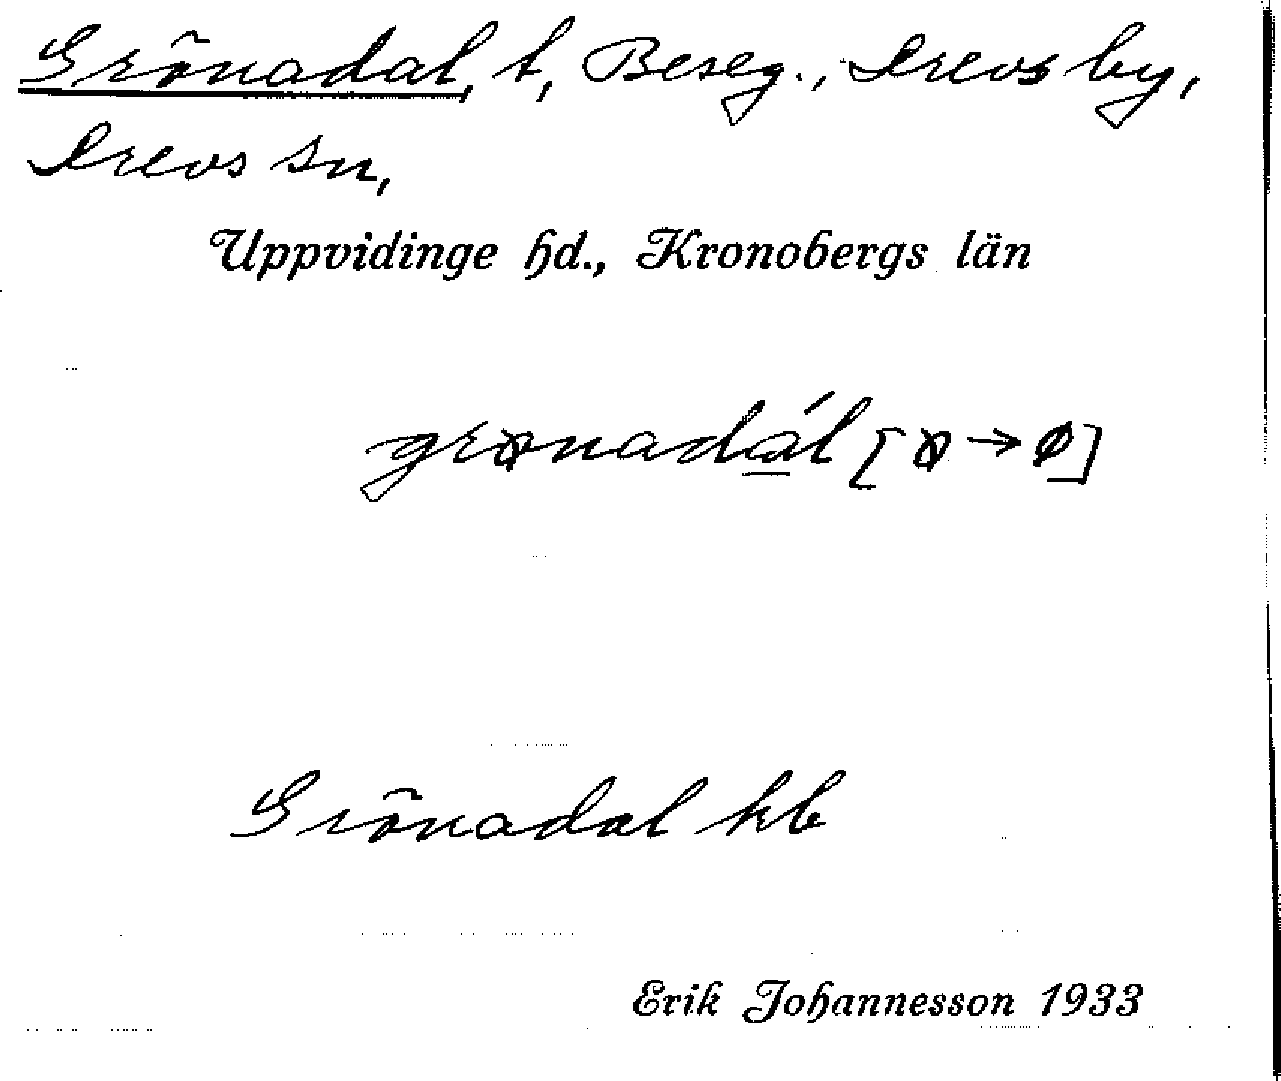 Grönadal, t, Beseg., Drevs by,
Drevs sn,
Uppvidinge hd., Kronobergs län
grønadál [ø → ø]
Grönadal kb
Erik Johannesson 1933